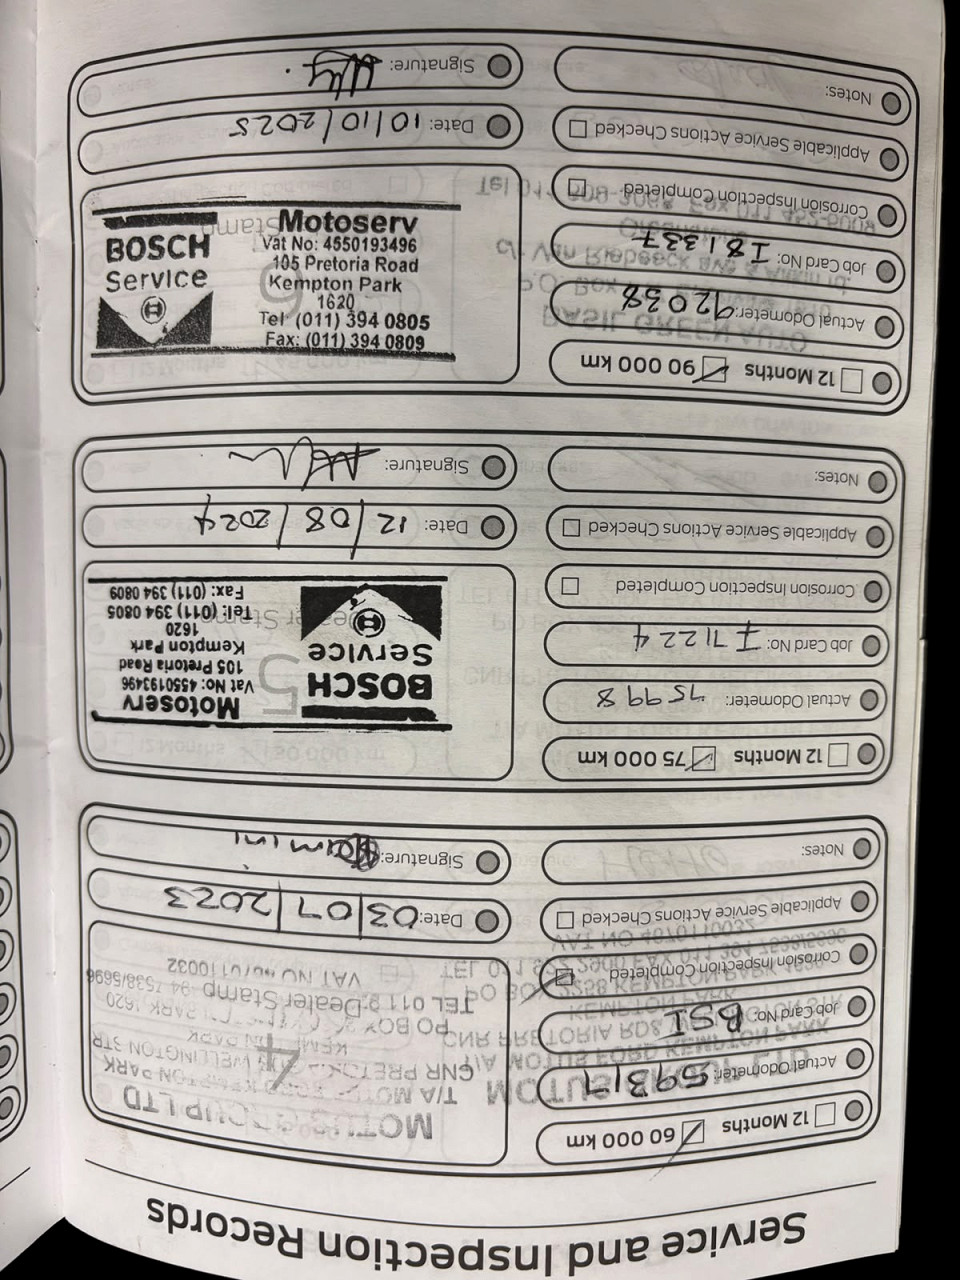 Service and Inspection Records
12 Months
60 000 km
Actual Odometer: 59317
Job Card No: BSI
Corrosion Inspection Completed
Applicable Service Actions Checked
Notes:
4
Dealer Stamp
T/A MOTUS FORD KEMPTON PARK
CNR PRETORIA RD & WELLINGTON STR
KEMPTON PARK
PO BOX
TEL 011
VAT NO
Date: 03/07/2023
Signature:
12 Months
75 000 km
Actual Odometer: 75998
Job Card No: I71224
Corrosion Inspection Completed
Applicable Service Actions Checked
Notes:
5
BOSCH
Service
Motoserv
Vat No: 4550193496
105 Pretoria Road
Kempton Park
1620
Tel: (011) 394 0805
Fax: (011) 394 0809
Date: 12/08/2024
Signature:
12 Months
90 000 km
Actual Odometer: 92038
Job Card No: I81337
Corrosion Inspection Completed
Applicable Service Actions Checked
Notes:
6
BOSCH
Service
Motoserv
Vat No: 4550193496
105 Pretoria Road
Kempton Park
1620
Tel: (011) 394 0805
Fax: (011) 394 0809
Date: 10/10/2025
Signature: